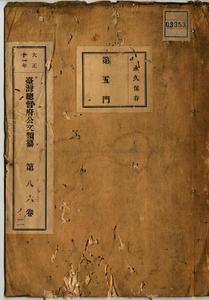 03353
永久保存
第五門
大正十一年
臺灣總督府公文類纂 第八六卷